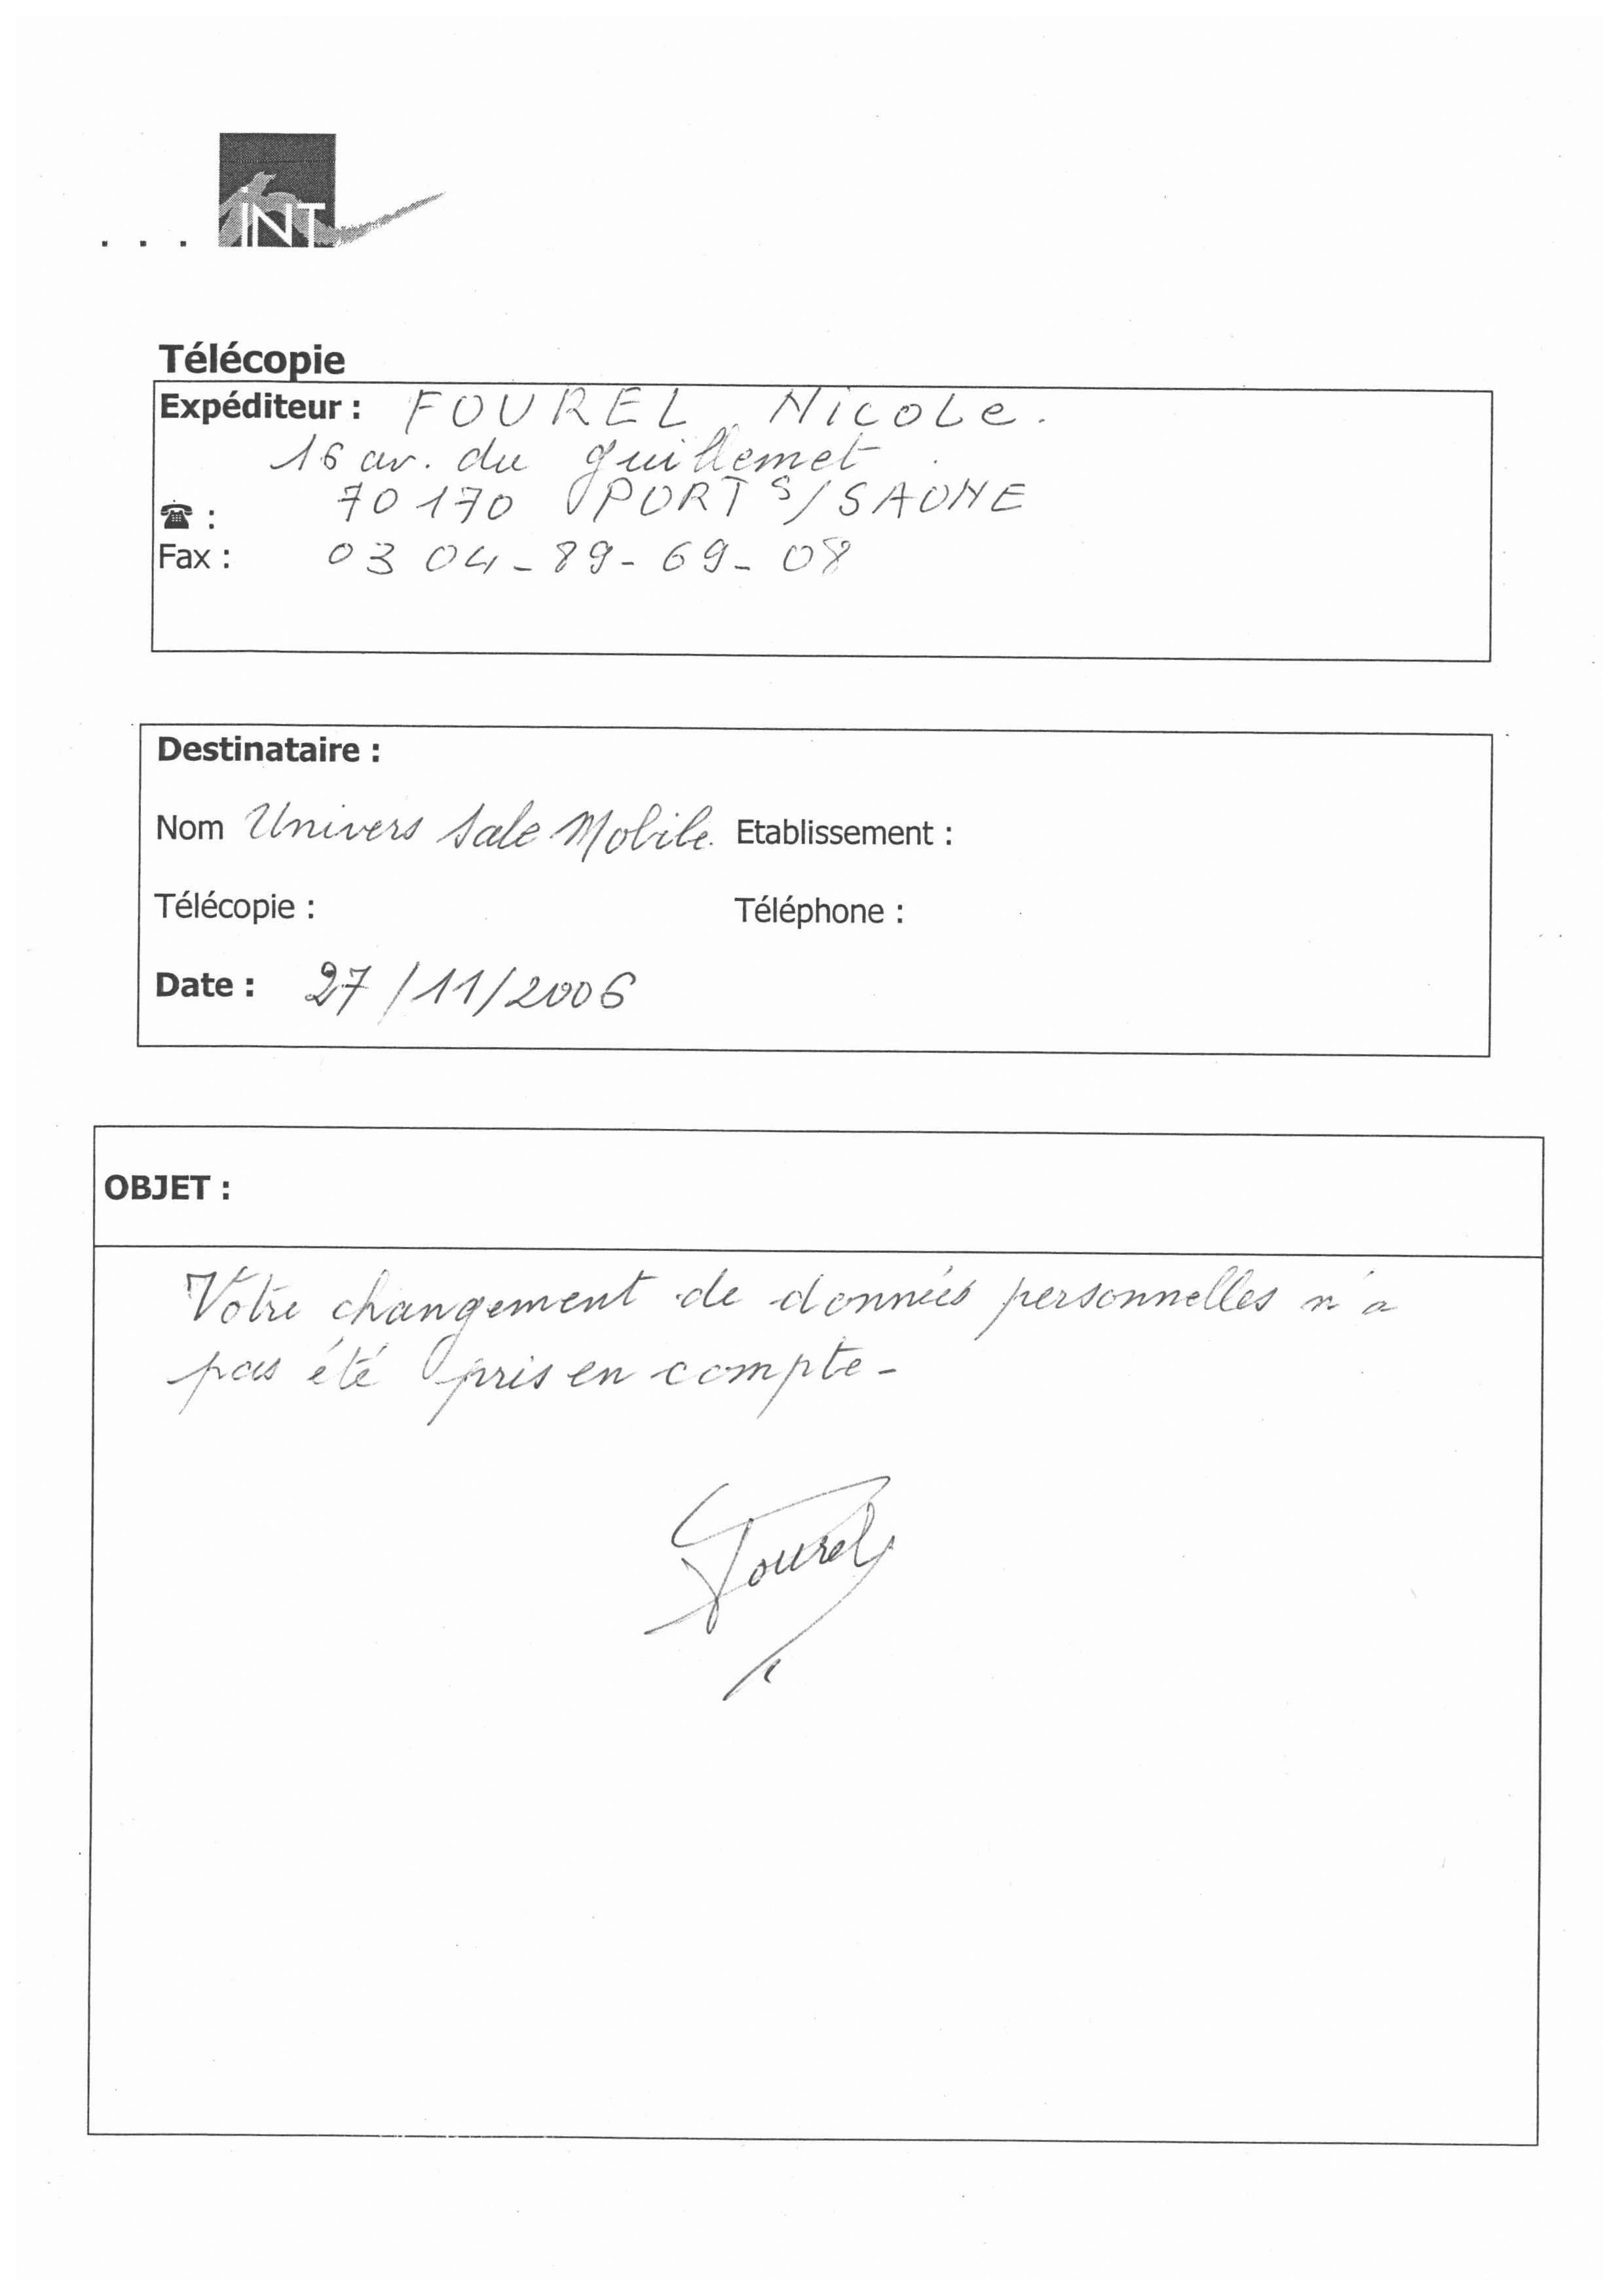 . . . INT
Télécopie
Expéditeur : FOUREL Nicole.
16 av. du guillemet
☎ : 70170 PORT s/SAONE
Fax : 03 04-89-69-08
Destinataire :
Nom Univers Sale Mobile. Etablissement :
Télécopie : Téléphone :
Date : 27/11/2006
OBJET :
Votre changement de données personnelles n'a
pas été pris en compte-
Fourel